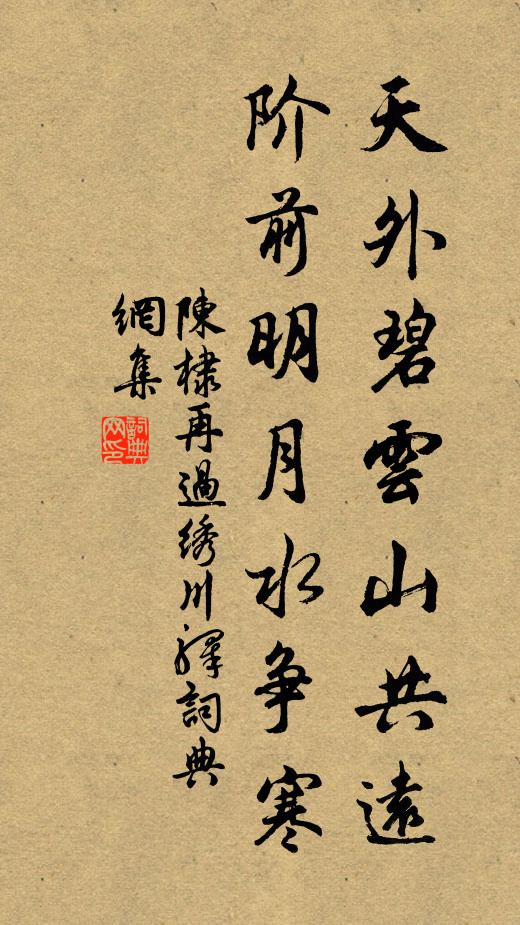 天外碧雲山共遠
阶前明月水争寒
陳棣再過绣川驛詞典
網集
詞典
网印